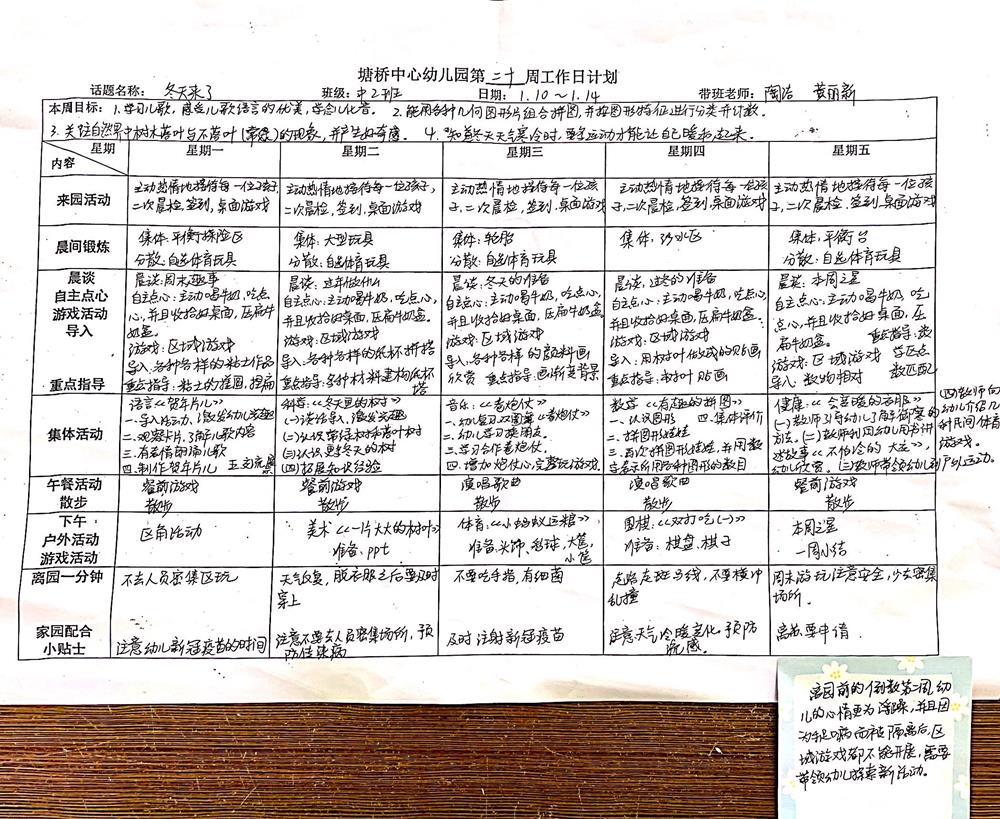 塘桥中心幼儿园第二十周工作日计划
话题名称：冬天来了 班级：中2班 日期：1.10～1.14 带班老师：陶洁 黄丽新
本周目标：1.学习儿歌，感受儿歌语言的优美，学念儿歌。 2.能用各种几何图形片组合拼图，并按图形特征进行分类并计数。
3.关注自然界中树木落叶与不落叶（常绿）的现象，并产生好奇感。 4.知道冬天天气寒冷时，要多运动才能让自己暖和起来。
星期 内容 星期一 星期二 星期三 星期四 星期五
来园活动
主动热情地接待每一位孩子
二次晨检，签到，桌面游戏
主动热情地接待每一位孩子，
二次晨检，签到，桌面游戏
主动热情地接待每一位孩
子，二次晨检，签到，桌面游戏
主动热情地接待每一位孩
子，二次晨检，签到，桌面游戏
主动热情地接待每一位孩
子，二次晨检，签到，桌面游戏
晨间锻炼
集体：平衡探险区
分散：自选体育玩具
集体：大型玩具
分散：自选体育玩具
集体：轮胎
分散：自选体育玩具
集体：沙水区
集体：平衡台
分散：自选体育玩具
晨谈
自主点心
游戏活动
导入
重点指导
晨谈：周末趣事
自主点心：主动喝牛奶，吃点
心，并且收拾好桌面，压扁牛
奶盒
游戏：区域游戏
导入：各种各样的粘土作品
重点指导：粘土的搓圆，捏扁
晨谈：过年做什么
自主点心：主动喝牛奶，吃点心，
并且收拾好桌面，压扁牛奶盒。
游戏：区域游戏
导入：各种各样的纸杯拼搭
重点指导：各种材料建构纸杯
塔
晨谈：冬天的准备
自主点心：主动喝牛奶，吃点心
并且收拾好桌面，压扁牛奶盒
游戏：区域游戏
导入：各种各样的颜料画
欣赏 重点指导：画渐变背景
晨谈：过冬的准备
自主点心：主动喝牛奶，吃点心，
并且收拾好桌面，压扁牛奶盒。
游戏：区域游戏
导入：用树叶做成的贴画
重点指导：树叶贴画
晨谈：本周之星
自主点心：主动喝牛奶，吃
点心，并且收拾好桌面，压
扁牛奶盒。 重点指导：数
游戏：区域游戏
导入：数物相对 数匹配
集体活动
语言《贺年片儿》
一.导入活动，激发幼儿兴趣
二.观察卡片，了解儿歌内容
三.有表情的诵儿歌
四.制作贺年片儿
科学：《冬天里的树》
(一)谈话导入，激发兴趣
(二)认识常绿树和落叶树
(三)认识更多冬天的树
(四)拓展知识经验
音乐：《卷炮仗》
一.幼儿复习双圆舞《卷炮仗》
二.幼儿学习换朋友。
三.学习合作卷炮仗。
四.增加炮仗心，完整玩游戏
数学《有趣的拼图》
一.认识图形 四.集体评价
二.拼图形娃娃
三.再次拼图形娃娃，并用数
字表示所用各种图形的数目
健康：《会变暖的衣服》
(一)教师引导幼儿了解御寒的
方法。(二)教师利用幼儿用书讲
述故事《不怕冷的大衣》，
幼儿欣赏。(三)教师带领幼儿到户外运动。
四)教师向
幼儿介绍几
种民间体育
游戏。
午餐活动
散步
餐前游戏
散步
餐前游戏
散步
演唱歌曲
散步
演唱歌曲
散步
餐前游戏
散步
下午：
户外活动
游戏活动
区角活动
美术《一片大大的树叶》
准备：ppt
体育：《小蚂蚁运粮》
准备：头饰，毛球，大筐，
小筐
围棋：《双打吃(一)》
准备：棋盘，棋子
本周之星
一周小结
离园一分钟
不去人员密集区玩
天气反复，脱衣服之后要及时
穿上
不要吃手指，有细菌
走路走斑马线，不要横冲
乱撞
周末游玩注意安全，少去密集
场所。
家园配合
小贴士
注意幼儿新冠疫苗的时间
注意不要去人员密集场所，预
防传染病
及时注射新冠疫苗
注意天气冷暖变化，预防
流感。
离苗要申请
离园前的倒数第二周，幼
儿的心情更为浮躁，并且因
为咳嗽而被隔离后，区
域游戏都不能开展，需要
带领幼儿探索新活动。